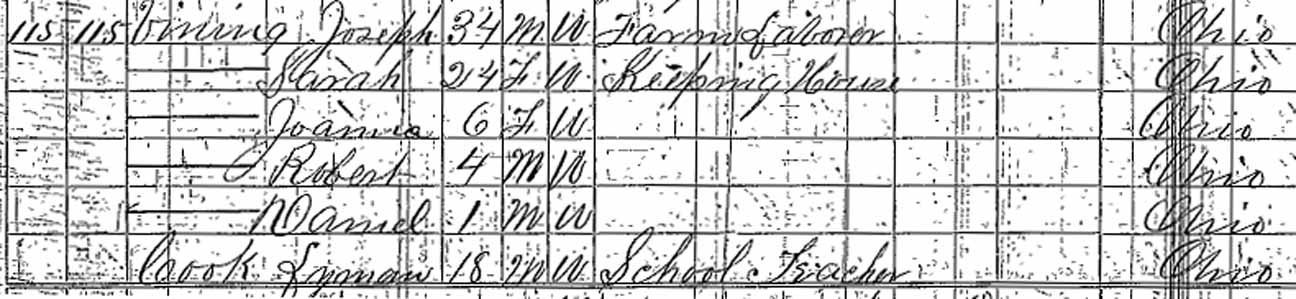 115 115 Vining Joseph 34 M W Farm Laborer Ohio
Sarah 24 F W Keeping House Ohio
Joanna 6 F W Ohio
Robert 4 M W Ohio
Daniel 1 M W Ohio
Cook Lyman 18 M W School Teacher Ohio